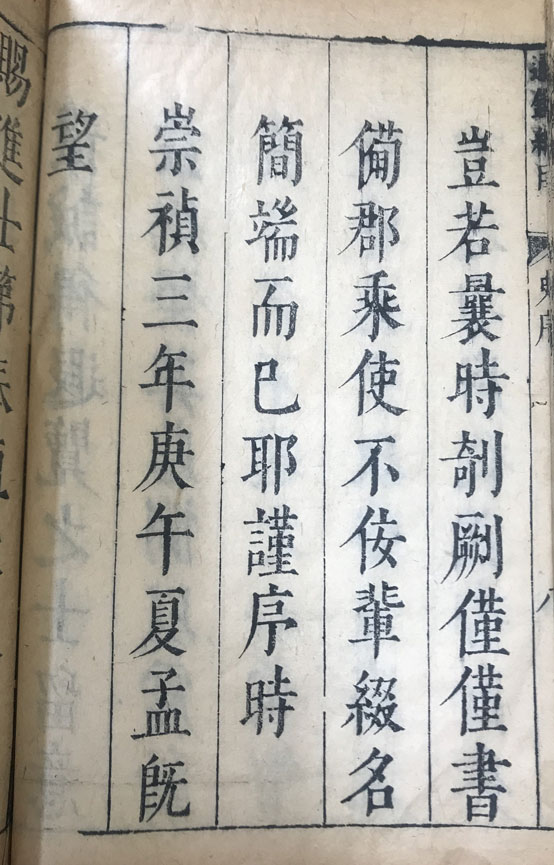 豈若曩時剞劂僅僅書
備郡乘使不佞輩綴名
簡端而已耶謹序時
崇禎三年庚午夏孟旣
望
賜進士第